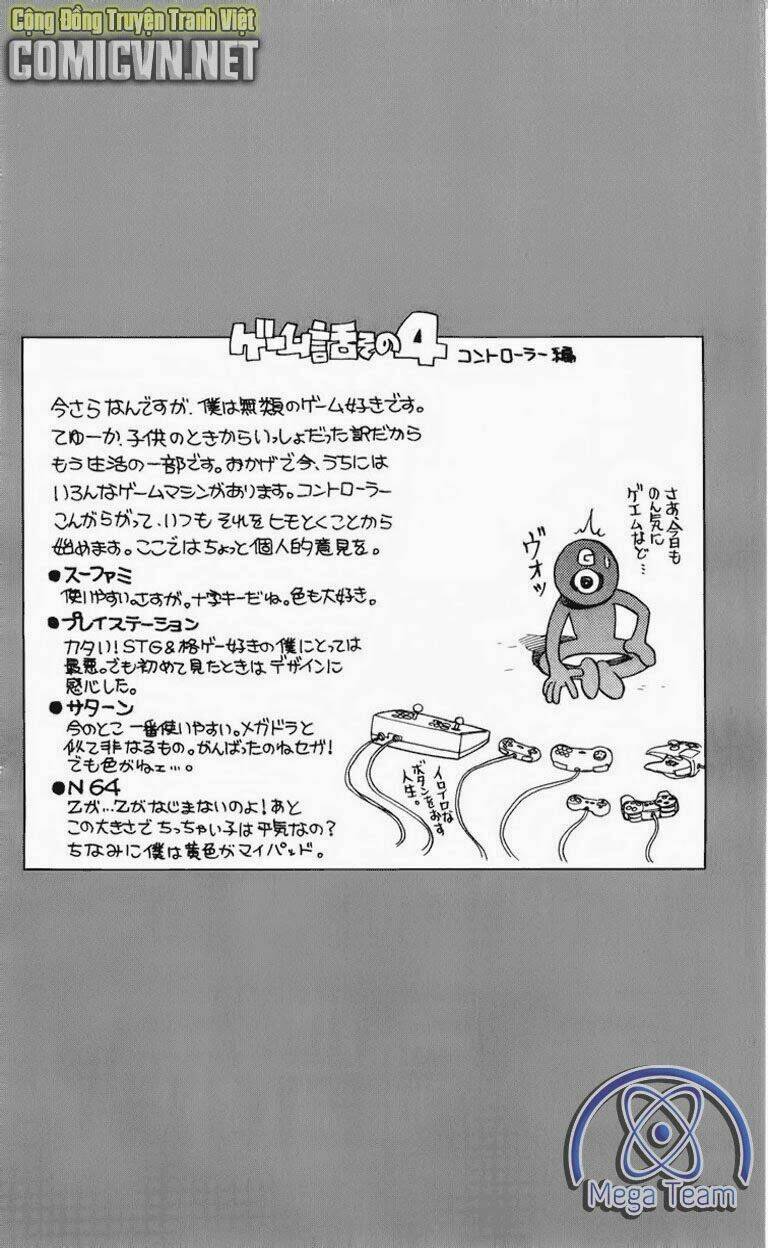 Cộng Đồng Truyện Tranh Việt
COMICVN.NET
ゲーム話その4 コントローラー編
今さらなんですが、僕は無類のゲーム好きです。
てゆーか、子供のときからいっしょだった訳だから
もう生活の一部です。おかげで今、うちには
いろんなゲームマシンがあります。コントローラー
こんがらがって、いつもそれをヒモとくことから
始めます。ここではちょっと個人的意見を。
●スーファミ
使いやすい。さすが。十字キーだね。色も大好き。
●プレイステーション
カタい!STG&格ゲー好きの僕にとっては
最悪。でも初めて見たときはデザインに
感心した。
●サターン
今のとこ一番使いやすい。メガドラと
似て非なるもの。がんばったのねセガ!
でも色がねェ…。
●N64
Zが…Zがなじまないのよ!あと
この大きさでちっちゃい子は平気なの?
ちなみに僕は黄色がマイパッド。
さあ、今日も
のん気に
ゲエムなど…
ヴォッ
G
イロイロな
ボタンをおす
人生。
Mega Team